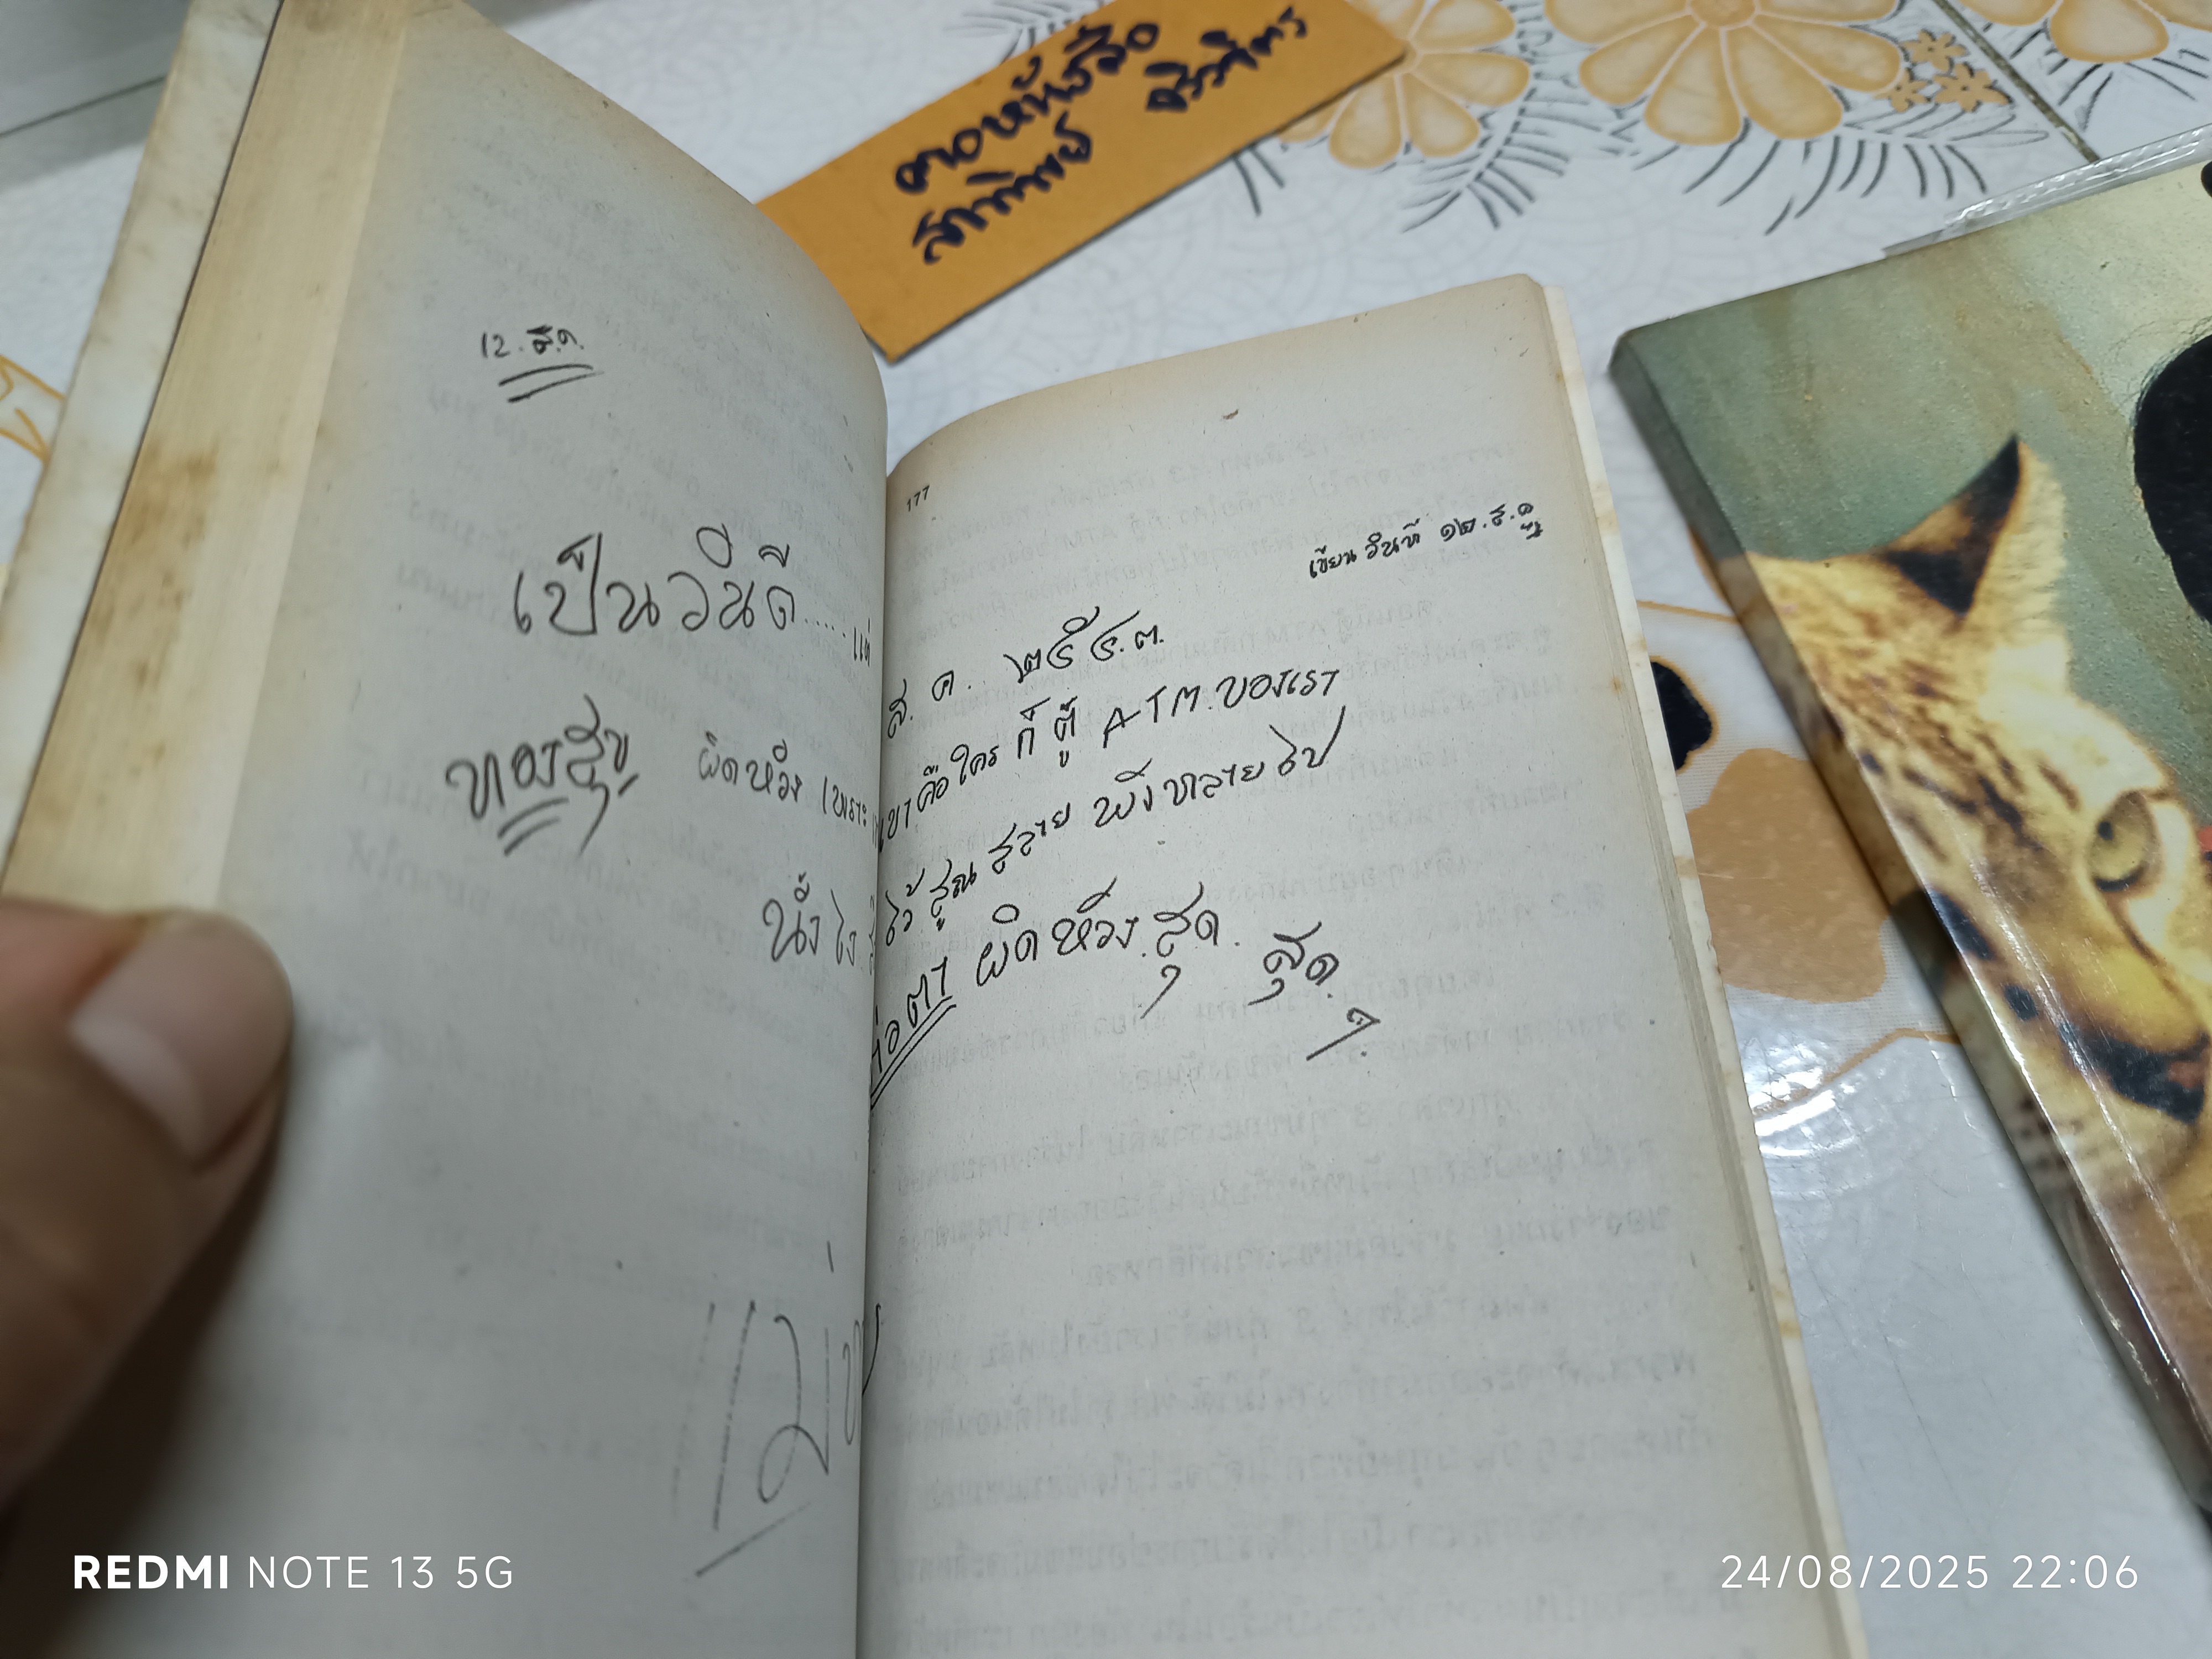 คอหนังสือ
สาทิพย์ ศิริวิจิตร
12. ส.ค.
เป็นวันดี.....แต่
ทองสุข ผิดหวัง เพราะ
นั่ง
แม่
177
เขียน วันที่ ๑๒.ส.ค
ส. ค. ๒๕๔๓.
เขาคือใคร ก็ ตู้ ATM. ของเรา
ไว้ สูญ สลาย พังทลาย ไป
ต่อตา ผิดหวัง. สุด. สุด. ๆ.
REDMI NOTE 13 5G
24/08/2025 22:06